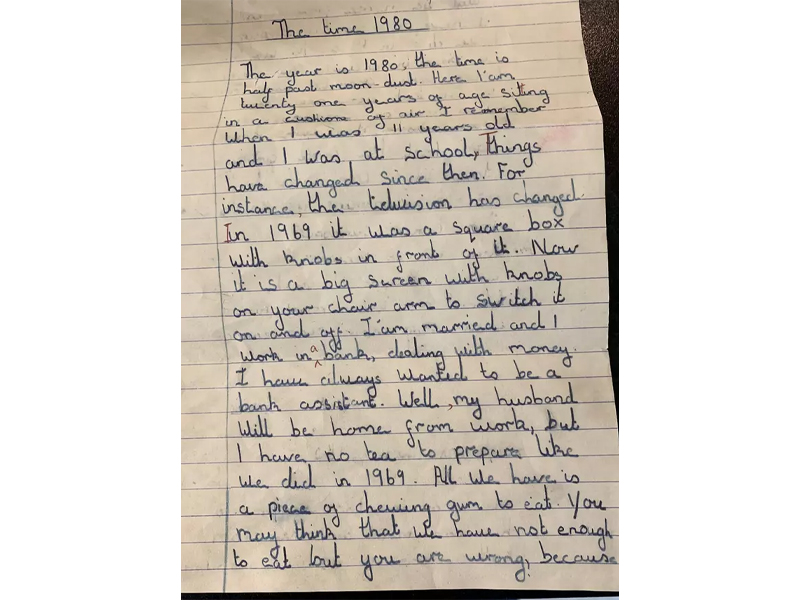 The time 1980
The year is 1980, the time is
half past moon-dust. Here I'am
twenty one years of age sitting
in a cushione of air I remember
when I was 11 years old
and I was at school, things
have changed since then. For
instance, the television has changed.
In 1969 it was a square box
with knobs in front of it. Now
it is a big screen with knobs
on your chair arm to switch it
on and off. I'am married and I
work in a bank, dealing with money.
I have always wanted to be a
bank assistant. Well, my husband
will be home from work, but
I have no tea to prepare like
we did in 1969. All we have is
a piece of chewing gum to eat. You
may think that we have not enough
to eat but you are wrong, because